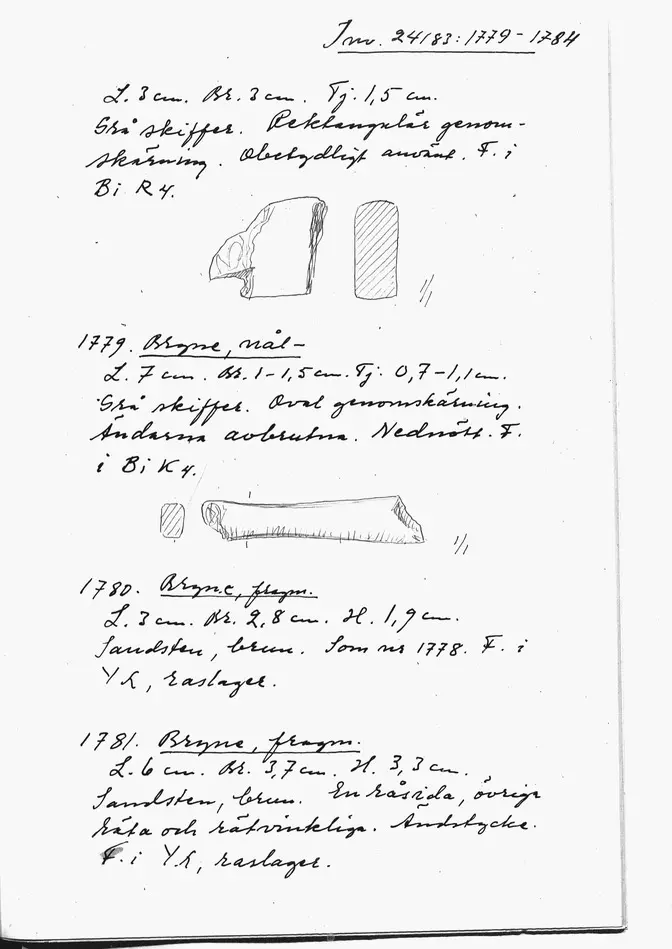 Inv. 24183:1779-1784
L. 3 cm. Br. 3 cm. Tj. 1,5 cm.
Grå skiffer. Rektangulär genom-
skärning. Obetydligt använt. F. i
Bi R4.
1/1
1779. Bryne, nål-
L. 7 cm. Br. 1-1,5 cm. Tj. 0,7-1,1 cm.
Grå skiffer. Oval genomskärning.
Ändarna avbrutna. Nednött. F.
i Bi K4.
1/1
1780. Bryne, fragm.
L. 3 cm. Br. 2,8 cm. H. 1,9 cm.
Sandsten, brun. Som nr 1778. F. i
raslager.
1781. Bryne, fragm.
L. 6 cm. Br. 3,7 cm. H. 3,3 cm.
Sandsten, brun. En råsida, övriga
räta och rätvinkliga. Ändstycke.
F. i raslager.